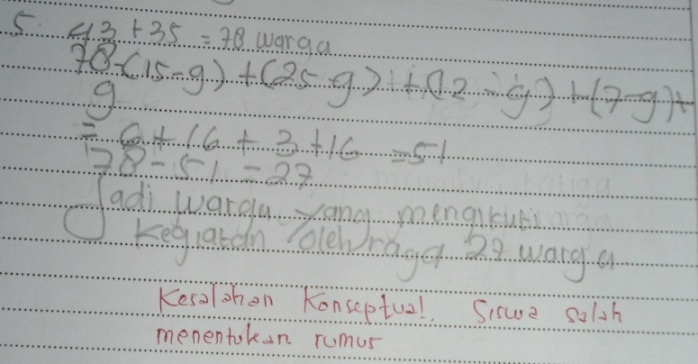 5. 43 + 35 = 78 warga
78-(15-9)+(25-9)+(12-9)+(7-9)+
9
= 6+16+3+16 =51
78-51 = 27
Jadi warga yang mengikuti
kegiatan olehraga 27 warga
Kesalahan Konseptual, Siswa salah
menentukan rumus